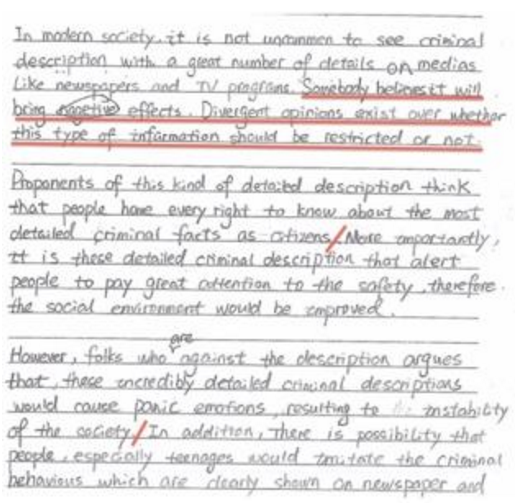 In modern society, it is not uncommon to see criminal
description with a great number of details on medias
like newspapers and TV programs. Somebody believes it will
bring nagetive effects. Divergent opinions exist over whether
this type of information should be restricted or not.
Proponents of this kind of detailed description think
that people have every right to know about the most
detailed criminal facts as citizens/More importantly,
it is these detailed criminal description that alert
people to pay great attention to the safety, therefore.
the social environment would be improved.
However, folks who are against the description argues
that, these incredibly detailed criminal descriptions
would cause panic emotions, resulting to instability
of the society/In addition, There is possibility that
people, especially teenages would imitate the criminal
behavious which are clearly shown on newspaper and